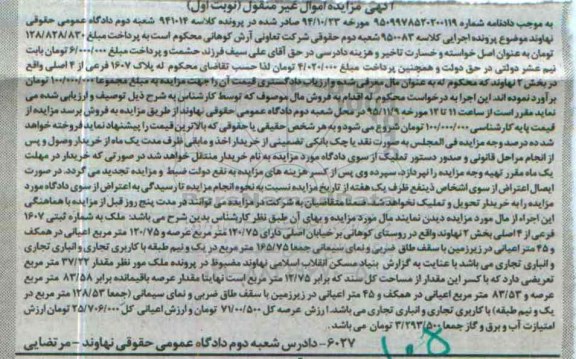 آگهی مزایده اموال غیر منقول (نوبت اول)
به موجب دادنامه شماره ۹۵۰۹۹۷۸۵۲۰۲۰۰۱۱۹ مورخه ۹۴/۱۰/۲۳ صادر شده در پرونده کلاسه ۹۴۱۰۱۴ شعبه دوم دادگاه عمومی حقوقی
نهاوند موضوع پرونده اجرایی کلاسه ۹۵۰۰۸۳ شعبه دوم حقوقی شرکت تعاونی آرش کوهانی محکوم است به پرداخت مبلغ ۱۲۸/۸۲۸/۸۳۰
تومان به عنوان اصل خواسته و خسارت تاخیر و هزینه دادرسی در حق آقای علی سیف فرزند حشمت و پرداخت مبلغ ۶/۰۰۰/۰۰۰ تومان بابت
نیم عشر دولتی در حق دولت و همچنین پرداخت مبلغ ۴/۰۲۰/۰۰۰ تومان لذا حسب تقاضای محکوم له پلاک ۱۶۰۷ فرعی از ۴ اصلی واقع
در بخش ۲ نهاوند که محکوم له به عنوان مال معرفی شده و ارزیاب دادگستری قیمت آن را جهت مزایده به مبلغ مجموعا ۱۰۰/۰۰۰/۰۰۰ تومان
برآورد نموده اند، این اجرا به درخواست محکوم له اقدام به فروش مال موصوف که توسط کارشناس به شرح ذیل توصیف و ارزیابی شده می
نماید مقرر است از ساعت ۱۱ تا ۱۲ مورخه ۹۵/۷/۱۸ در محل شعبه دوم دادگاه عمومی حقوقی نهاوند از طریق مزایده به فروش برسد مزایده از
قیمت پایه کارشناسی ۱۰۰/۰۰۰/۰۰۰ تومان شروع می شود و به هر شخص حقیقی یا حقوقی که بالاترین قیمت را پیشنهاد نماید فروخته خواهد
شد ده درصد وجه مزایده فی المجلس به صورت نقد یا چک بانکی تضمینی از خریدار اخذ و مابقی ظرف مدت یک ماه از خریدار وصول و پس
از انجام مراحل قانونی و صدور دستور تملیک از سوی دادگاه مورد مزایده به نام خریدار منتقل خواهد شد در صورتی که خریدار در مهلت
یک ماه مقرر بقیه وجه مزایده را نپردازد، سپرده وی پس از کسر هزینه های مزایده به نفع دولت ضبط و مزایده تجدید می گردد. در صورت
ایصال اعتراض از سوی اشخاص ذینفع ظرف یک هفته از تاریخ مزایده نسبت به نحوه انجام مزایده تا رسیدگی به اعتراض از سوی دادگاه مورد
مزایده را به خریدار تحویل و تملیک نخواهد شد. ضمنا متقاضیان به شرکت در مزایده می توانند در مدت پنج روز قبل از مزایده با هماهنگی
این اجراء از مال مورد مزایده دیدن نمایند مال مورد مزایده و بهای آن طبق نظر کارشناس بدین شرح می باشد: ملک به شماره ثبتی ۱۶۰۷
فرعی از ۴ اصلی بخش ۲ نهاوند واقع در روستای کوهانی بر خیابان اصلی دارای ۱۲۰/۷۵ متر مربع عرصه و ۱۲۰/۷۵ متر مربع اعیانی در همکف
و ۴۵ متر اعیانی در زیرزمین با سقف طاق ضربی و نمای سیمانی جمعا ۱۶۵/۷۵ متر مربع در یک و نیم طبقه با کاربری تجاری و انباری تجاری
و انباری تجاری می باشد با عنایت به گزارش بنیاد مسکن انقلاب اسلامی نهاوند مضبوط در پرونده ملک مور نظر مقدار ۳۷/۲۲ متر مربع
تعریضی دارد که با کسر این مقدار از مساحت کل سند که برابر ۱۲/۷۵ متر مربع است نهایتا مقدار عرصه باقیمانده برابر ۸۳/۵۸ متر مربع
عرصه و ۸۳/۵۳ متر مربع اعیانی در همکف و ۴۵ متر اعیانی در زیرزمین با سقف طاق ضربی و نمای سیمانی (جمعا ۱۲۸/۵۳ متر مربع در
یک و نیم طبقه) با کاربری تجاری و انباری تجاری می باشد. ارزش عرصه کل ۷۱/۰۰/۵۰۰ تومان و ارزش اعیانی کل ۲۵/۷۰۶/۰۰۰ تومان ارزش
امتیازت آب و برق و گاز جمعا ۳/۲۹۳/۵۰۰ تومان می باشد.
۶۰۲۷- دادرس شعبه دوم دادگاه عمومی حقوقی نهاوند - مرتضایی